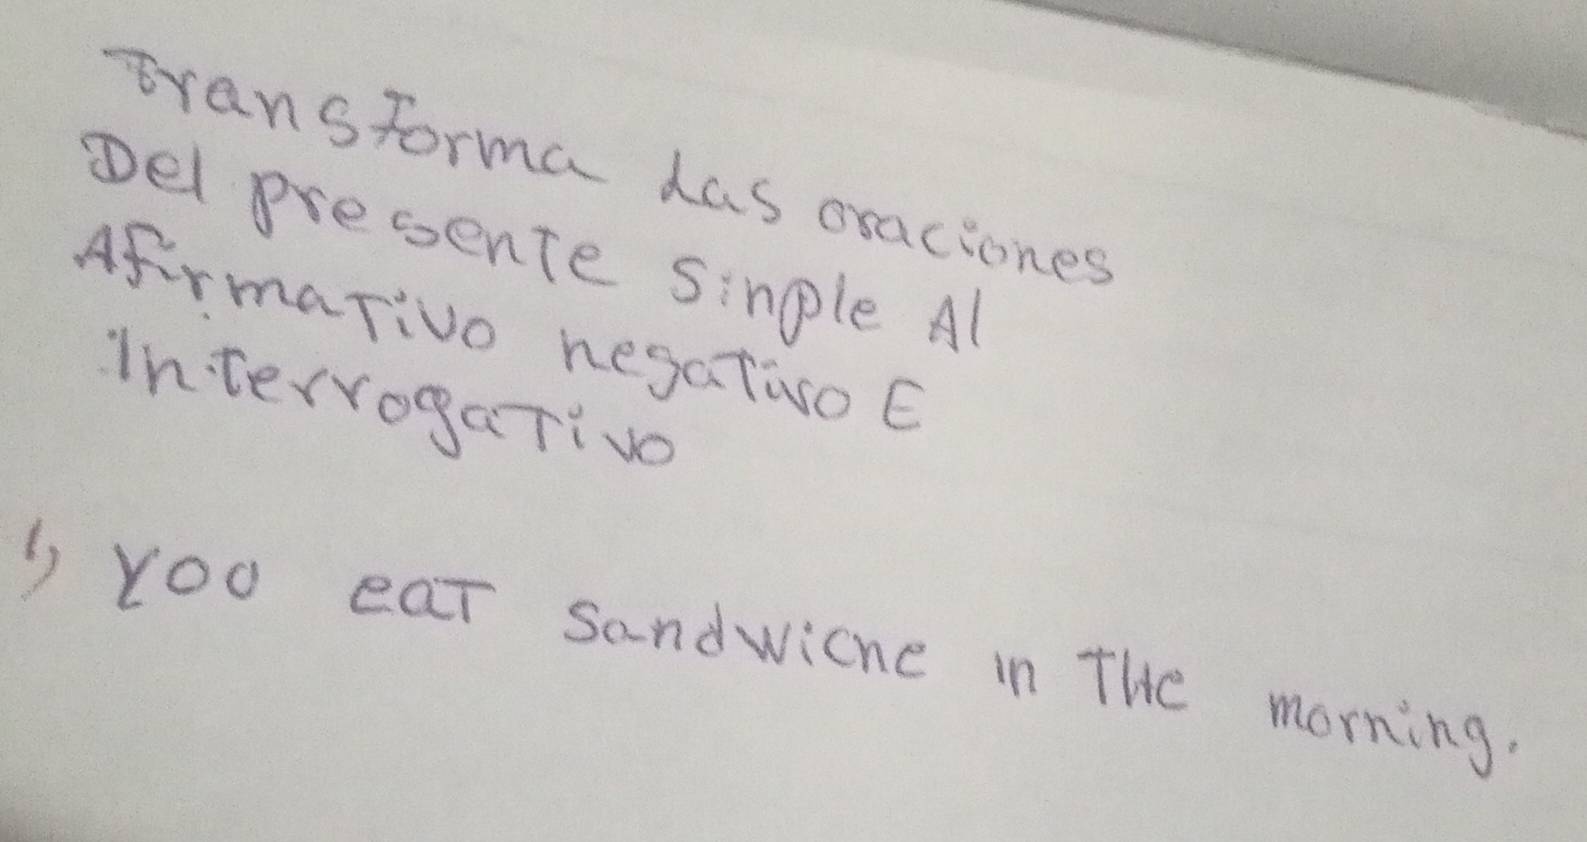 Transforma Las oraciones
Del presente Sinple Al
Afirmativo negativo E
Interrogativo
1) You eat Sandwiche in The morning.